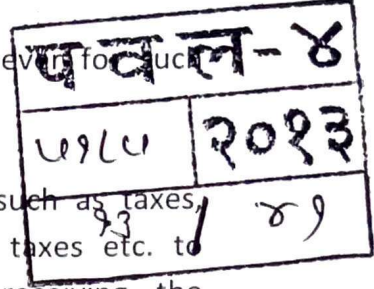 ever for such
पवल-४
५१८५ २०१३
such as taxes,
१३ / ४१
taxes etc. to
the